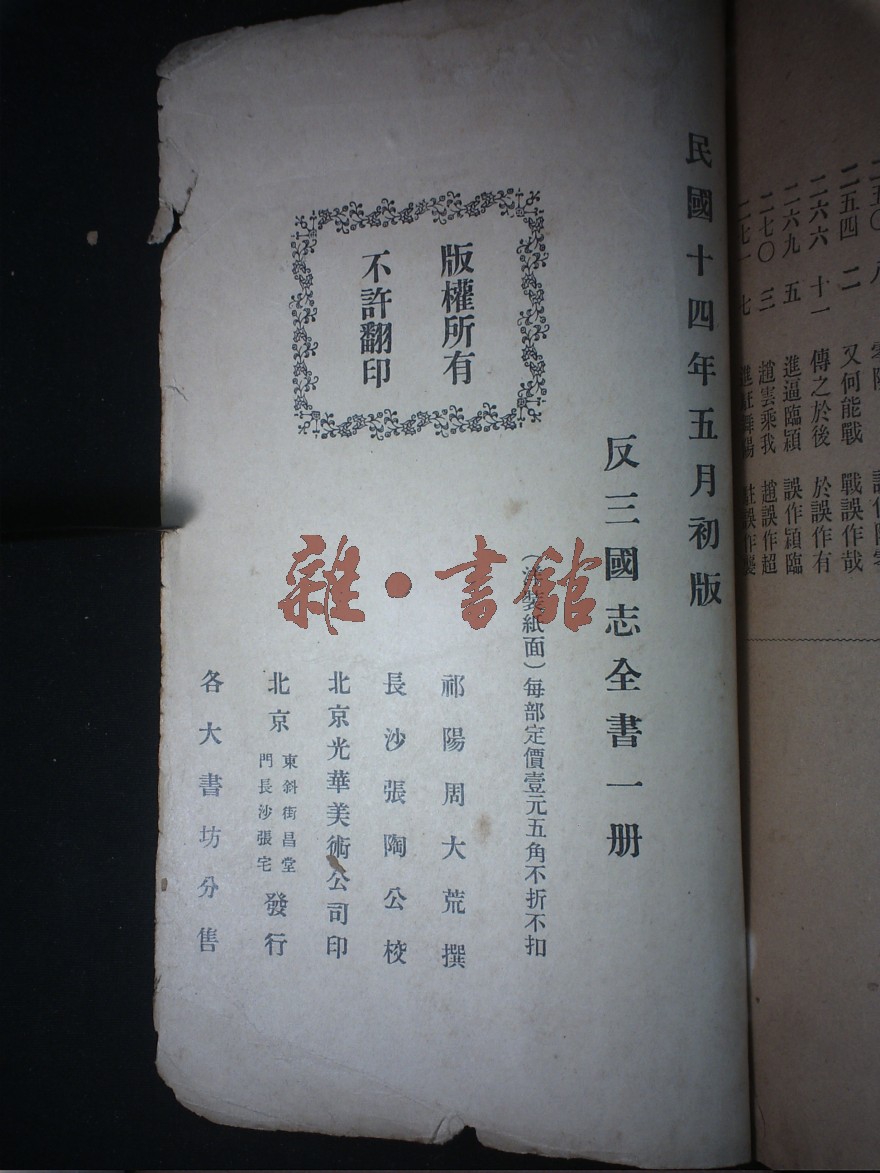 二五四　二　又何能戰　戰誤作哉
二六六　十一　傳之於後　於誤作有
二六九　五　進逼臨潁　誤作潁臨
二七〇　三　趙雲乘我　趙誤作超
民國十四年五月初版
反三國志全書一册
（洋裝紙面）每部定價壹元五角不折不扣
版權所有
不許翻印
祁陽周大荒撰
長沙張陶公校
北京光華美術公司印
北京東斜街昌堂門長沙張宅發行
各大書坊分售
雜·書館